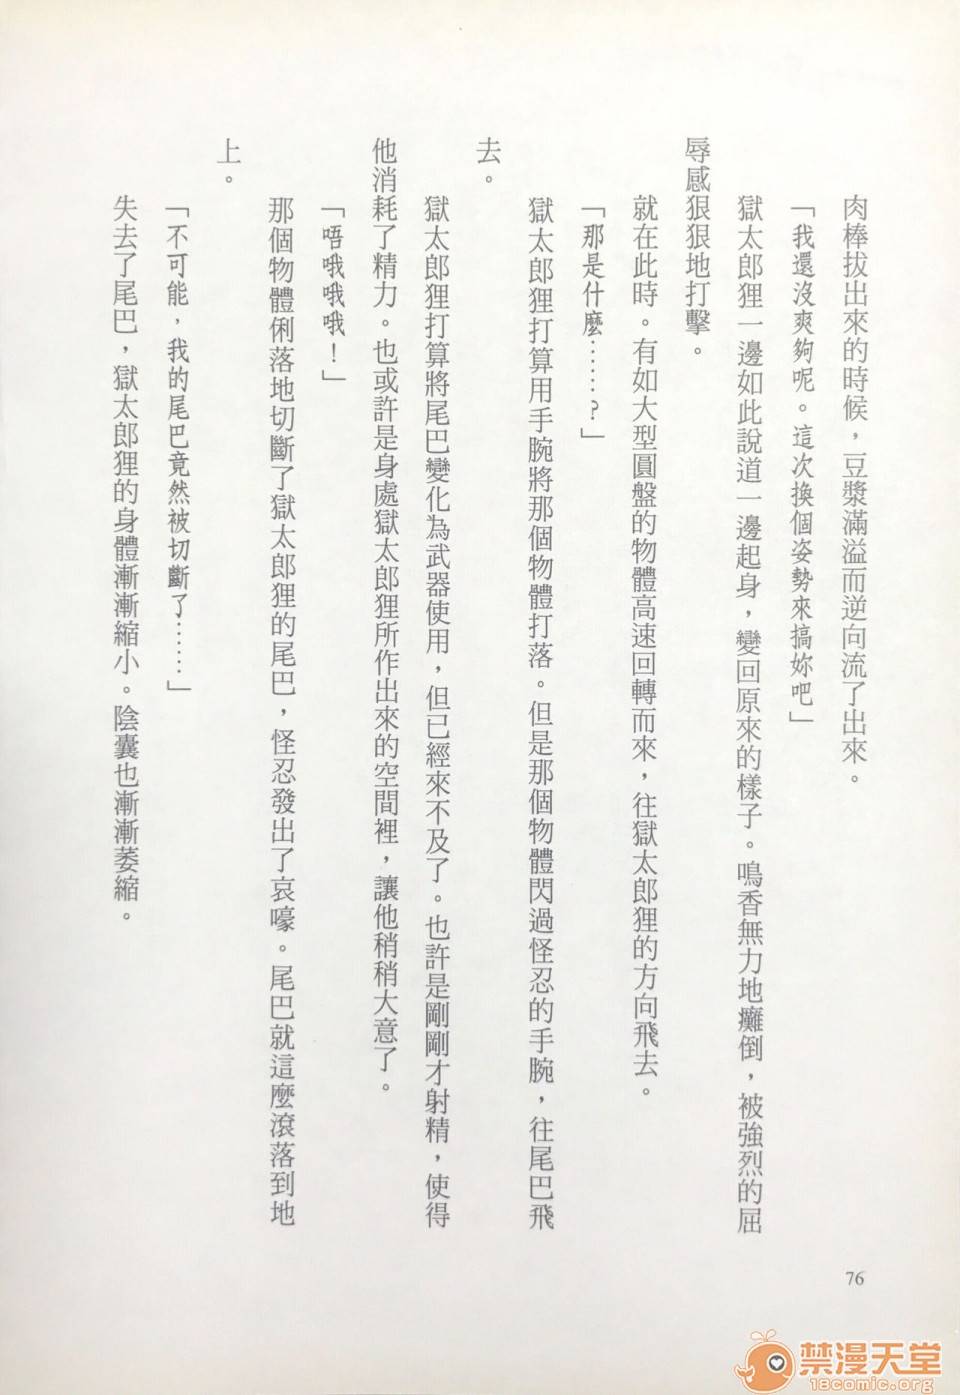 肉棒拔出來的時候，豆漿滿溢而逆向流了出來。
「我還沒爽夠呢。這次換個姿勢來搞妳吧」
獄太郎狸一邊如此說道一邊起身，變回原來的樣子。鳴香無力地癱倒，被強烈的屈
辱感狠狠地打擊。
就在此時。有如大型圓盤的物體高速回轉而來，往獄太郎狸的方向飛去。
「那是什麼……？」
獄太郎狸打算用手腕將那個物體打落。但是那個物體閃過怪忍的手腕，往尾巴飛
去。
獄太郎狸打算將尾巴變化為武器使用，但已經來不及了。也許是剛剛才射精，使得
他消耗了精力。也或許是身處獄太郎狸所作出來的空間裡，讓他稍稍大意了。
「唔哦哦哦！」
那個物體俐落地切斷了獄太郎狸的尾巴，怪忍發出了哀嚎。尾巴就這麼滾落到地
上。
「不可能，我的尾巴竟然被切斷了……」
失去了尾巴，獄太郎狸的身體漸漸縮小。陰囊也漸漸萎縮。
76
禁漫天堂
18comic.org